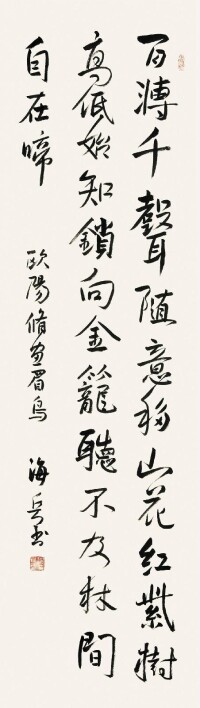 百啭千聲隨意移山花紅紫樹
高低始知鎖向金籠聽不及林間
自在啼
歐陽脩畫眉鸟
海兵书